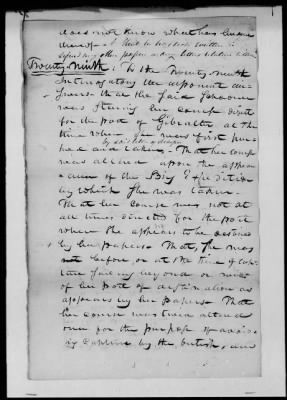 does not know what has become
thereof
Twenty ninth. To the Twenty ninth
Interrogatory the deponent an-
swers that the said schooner
was steering her course direct
for the port of Gibraltar at the
time when she was first pur-
sued and taken. That her course
was altered upon the appear-
ance of the Brig Expedition
by which she was taken.
That her course was not at
all times directed for the port
where she appears to be destined
by her papers. That, she was
not before or at the time of cap-
ture sailing beyond or wide
of her port of destination as
appears by her papers. That
her course was twice altered
once for the purpose of avoid-
ing capture by the British, and